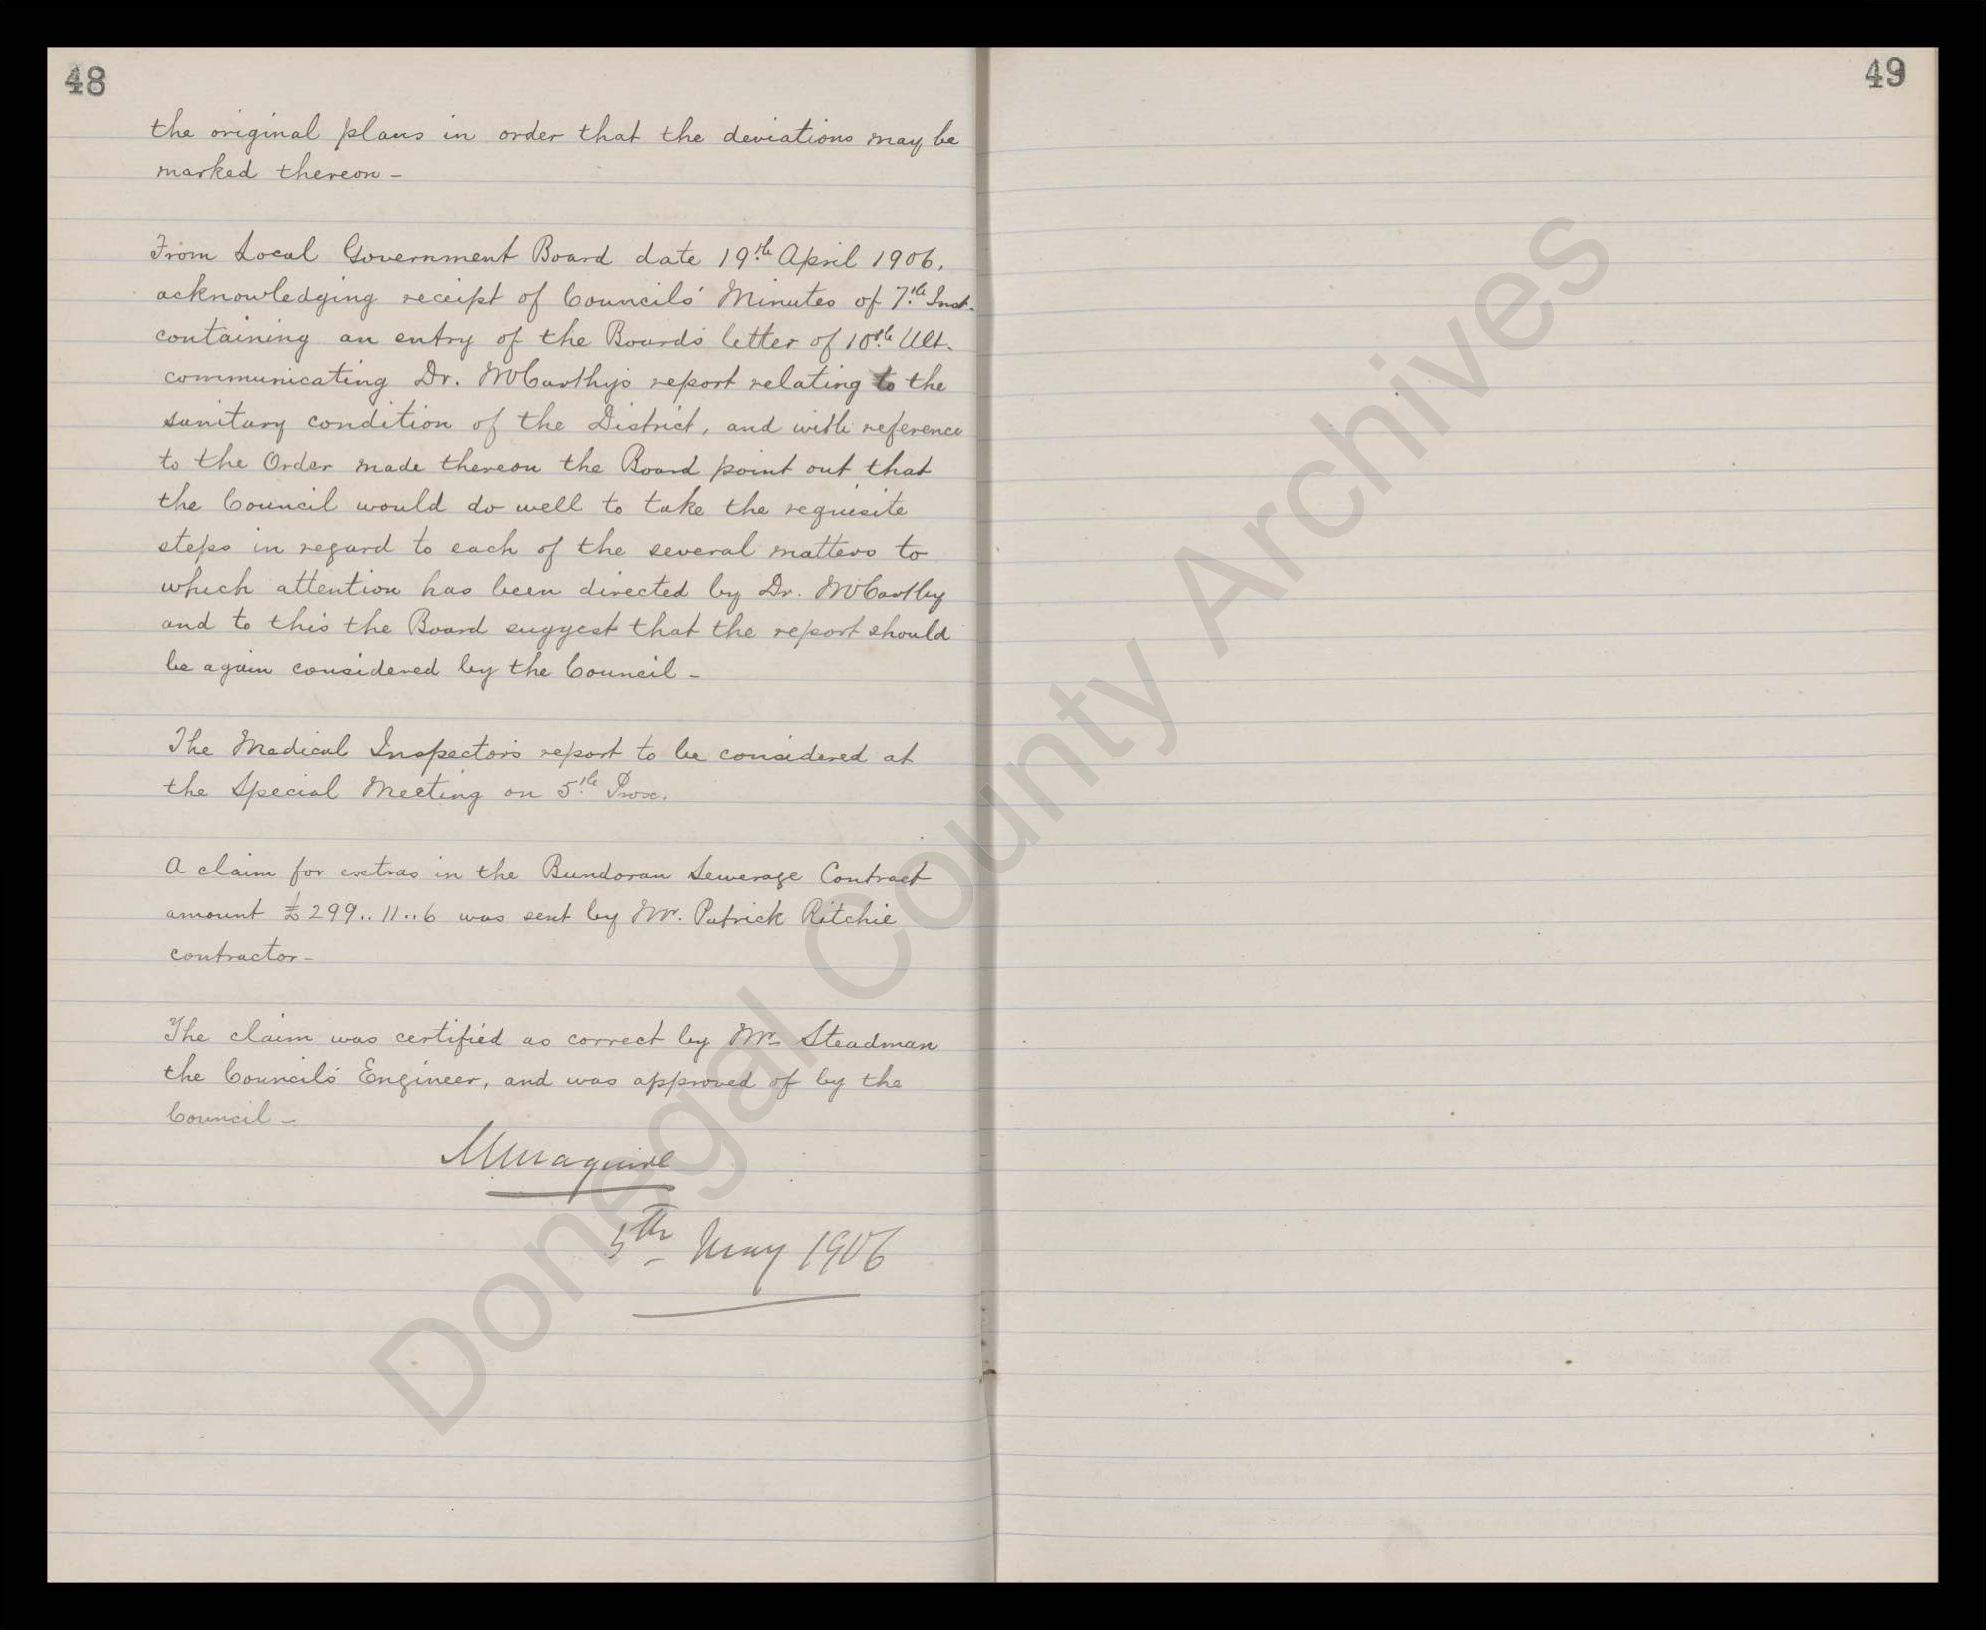 48
the original plans in order that the deviations may be
marked thereon -
From Local Government Board date 19th April 1906.
acknowledging receipt of Councils' Minutes of 7th Inst.
containing an entry of the Boards letter of 10th Ult.
communicating Dr. McCarthy's report relating to the
sanitary condition of the District, and with reference
to the Order made thereon the Board point out that
the Council would do well to take the requisite
steps in regard to each of the several matters to
which attention has been directed by Dr. McCarthy
and to this the Board suggest that the report should
be again considered by the Council -
The Medical Inspector's report to be considered at
the Special Meeting on 5th Prox.
A claim for extras in the Bundoran Sewerage Contract
amount £299..11..6 was sent by Mr. Patrick Ritchie
contractor -
The claim was certified as correct by Mr. Steadman
the Council's Engineer, and was approved of by the
Council -
Maguire
5th May 1906
49
Donegal County Archives